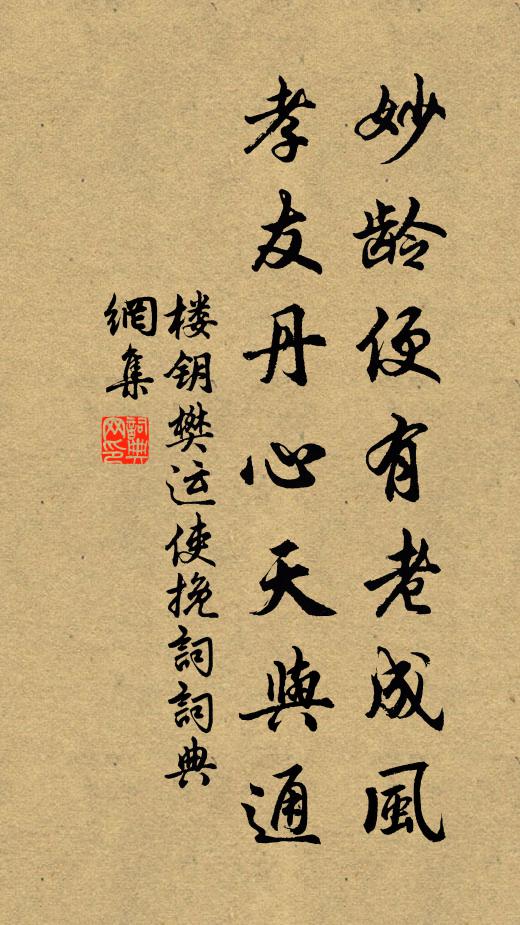 妙龄便有老成風
孝友丹心天與通
楼钥樊运使挽詞詞典
網集
詞典
网印